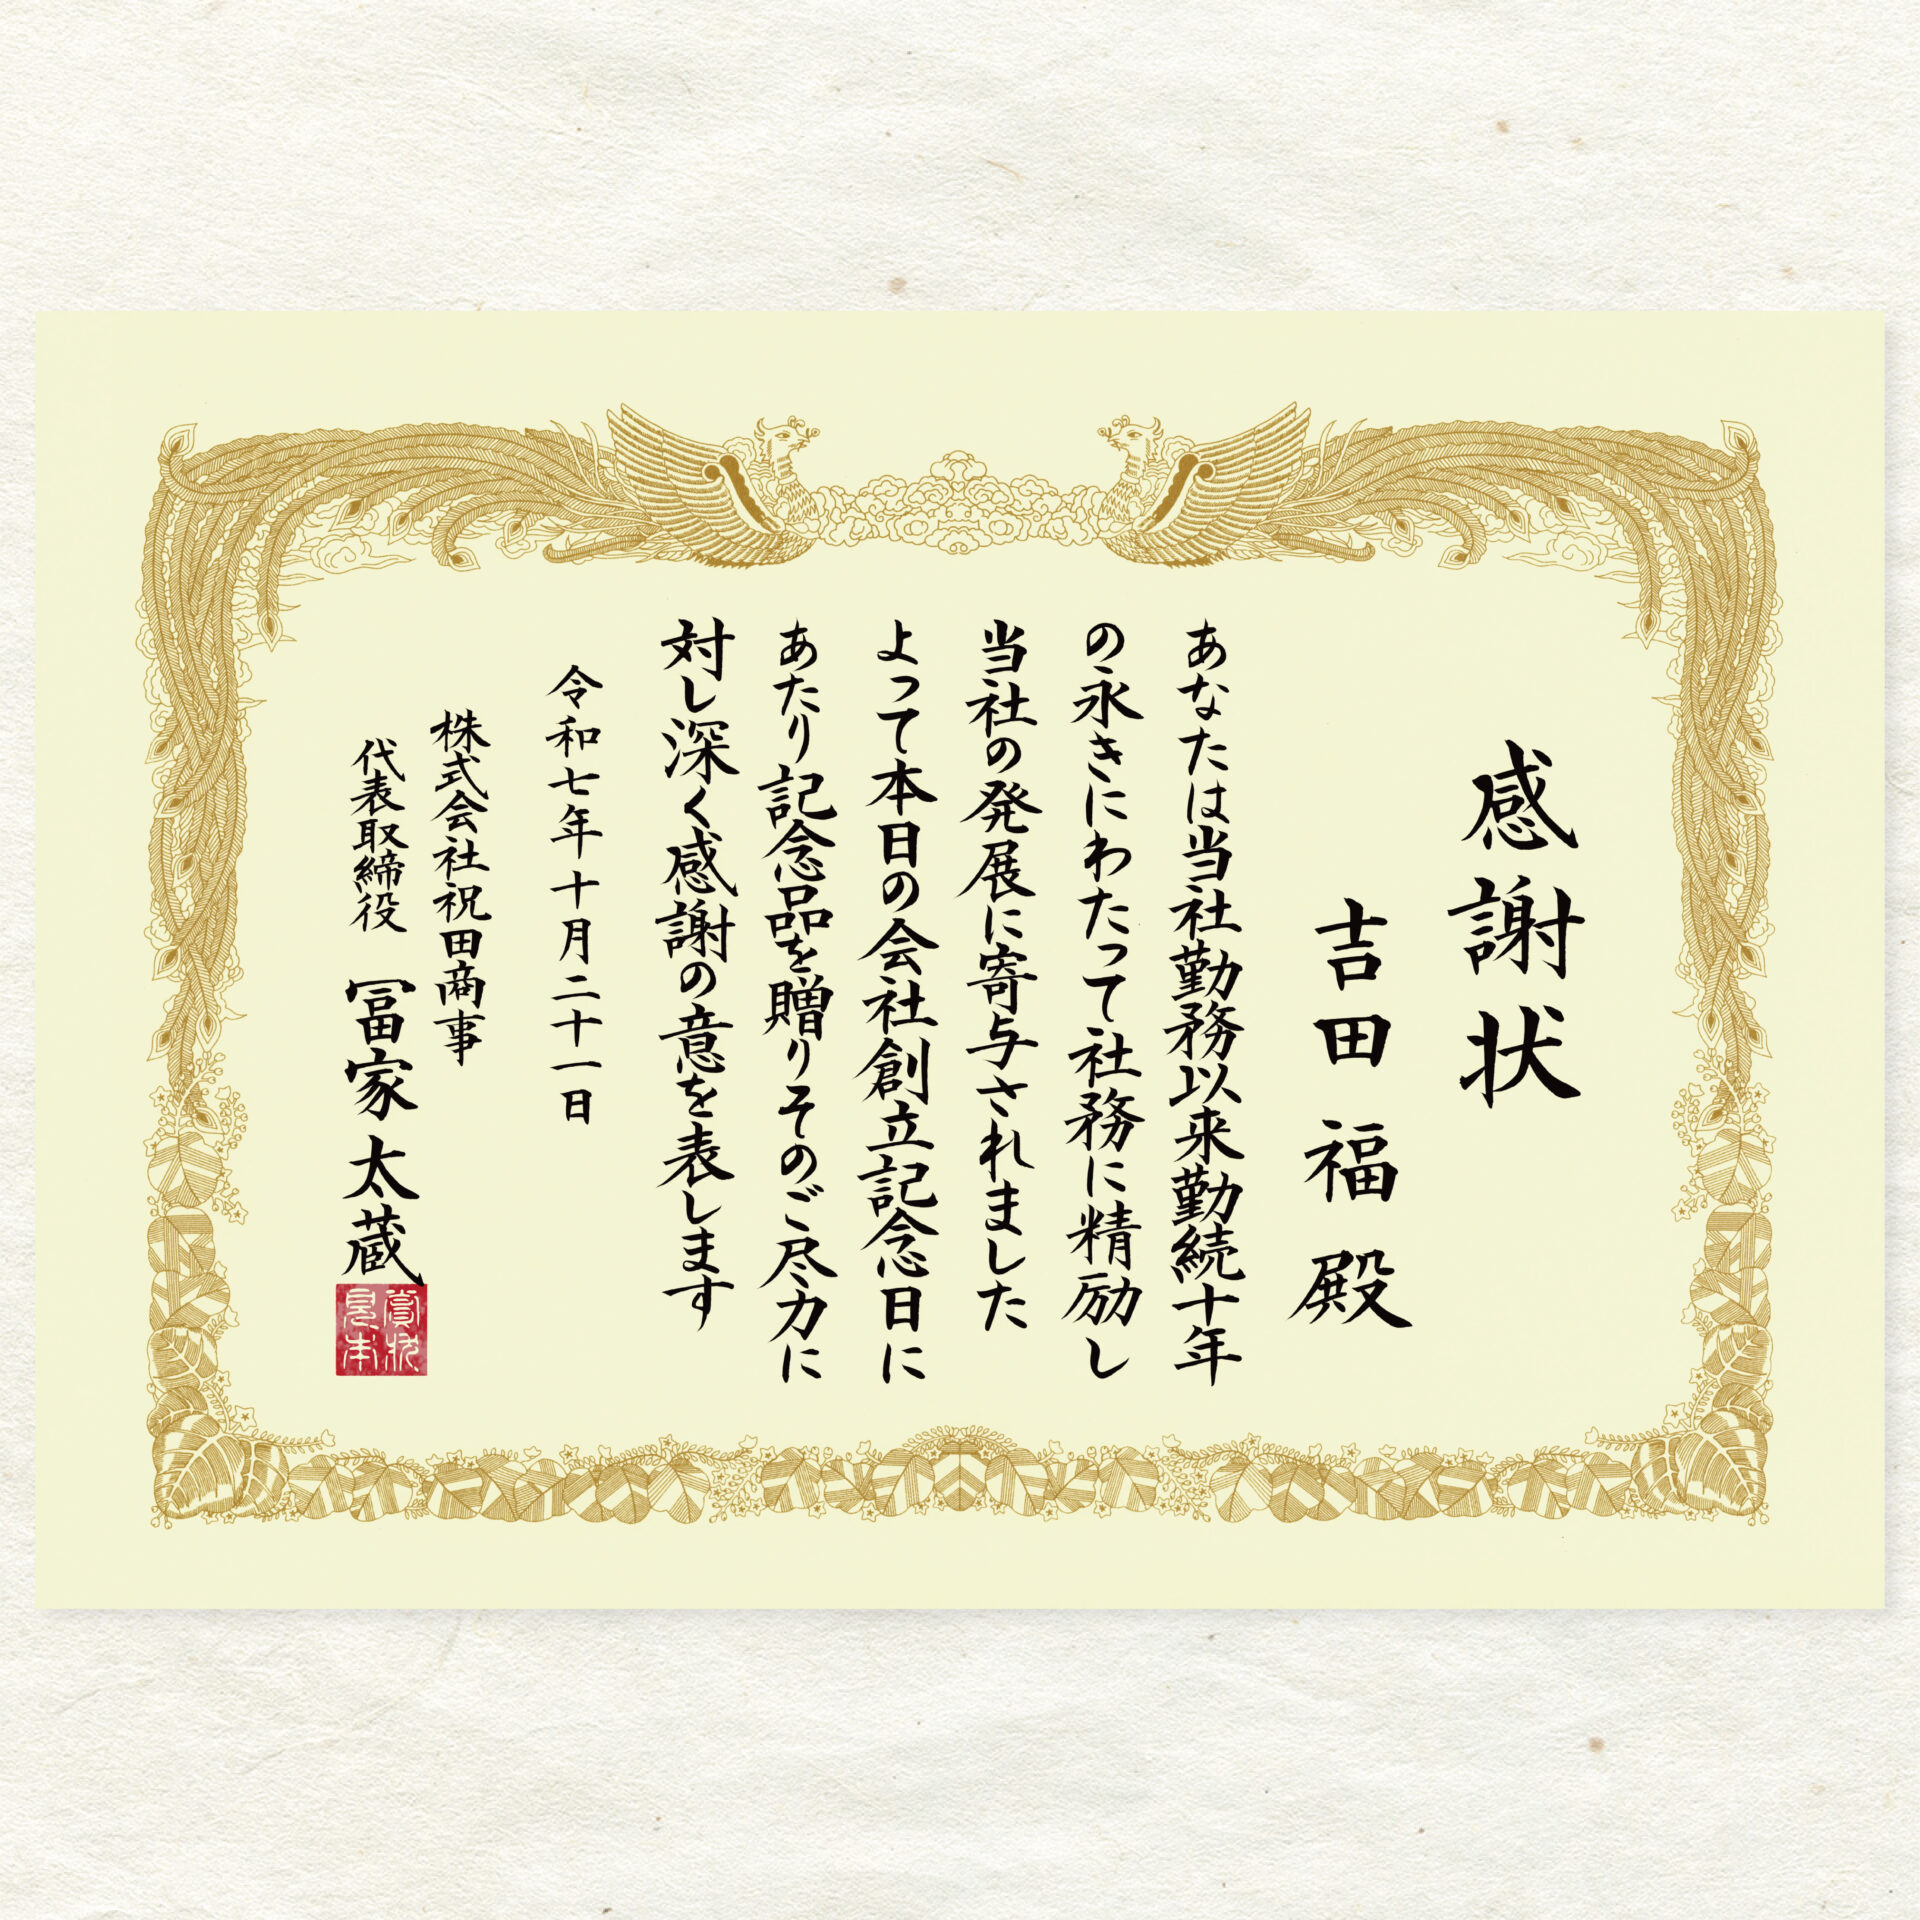 感謝状
吉田福殿
あなたは当社勤務以来勤続十年
の永きにわたって社務に精励し
当社の発展に寄与されました
よって本日の会社創立記念日に
あたり記念品を贈りそのご尽力に
対し深く感謝の意を表します
令和七年十月二十一日
株式会社祝田商事
代表取締役 冨家太蔵
賞状
見本